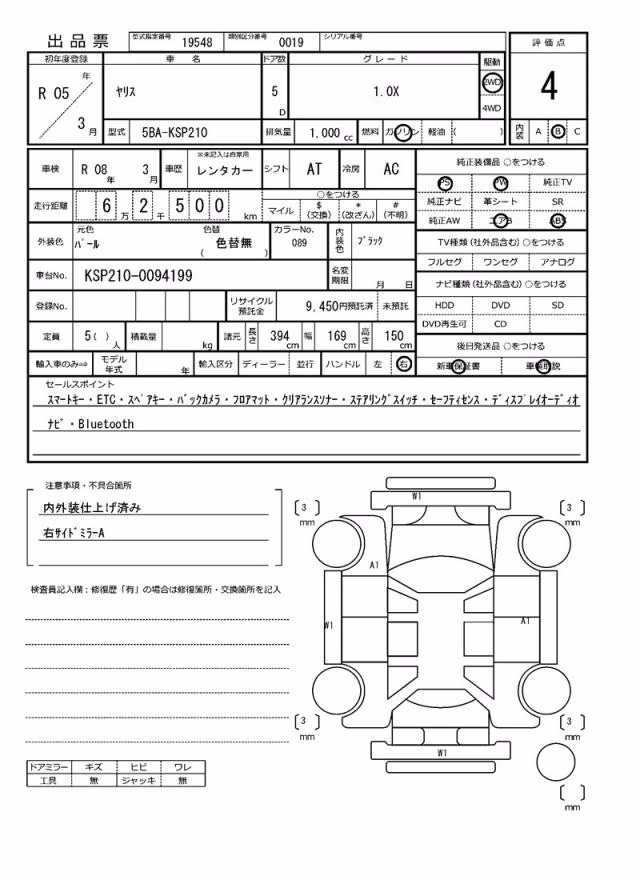 出品票
型式指定番号 19548 類別区分番号 0019 シリアル番号
初年度登録 車名 ドア数 グレード 駆動 評価点
R 05 年 3 月 ヤリス 5 D 1.0X 2WD 4WD 4
型式 5BA-KSP210 排気量 1.000 cc 燃料 ガソリン 軽油 ( ) 内装 A B C
車検 R 08 年 3 月 車歴 ※未記入は自家用 レンタカー シフト AT 冷房 AC
走行距離 6 万 2 千 5 0 0 km ○をつける マイル $ (交換) * (改ざん) # (不明)
外装色 元色 パール 色替 色替無 ( ) カラーNo. 089 内装色 ブラック
車台No. KSP210-0094199 名変期限 月 日
登録No. リサイクル預託金 9.450円預託済 未預託
定員 5( ) 人 積載量 kg 諸元 長さ 394 cm 幅 169 cm 高さ 150 cm
輸入車のみ⇒ モデル年式 年 輸入区分 ディーラー 並行 ハンドル 左 右
純正装備品 ○をつける
PS PW 純正TV
純正ナビ 革シート SR
純正AW エアB ABS
TV種類 (社外品含む) ○をつける
フルセグ ワンセグ アナログ
ナビ種類 (社外品含む) ○をつける
HDD DVD SD
DVD再生可 CD
後日発送品 ○をつける
新車保証書 車輌取説
セールスポイント
スマートキー・ETC・スペアキー・バックカメラ・フロアマット・クリアランスソナー・ステアリングスイッチ・セーフティセンス・ディスプレイオーディオ
ナビ・Bluetooth
注意事項・不具合箇所
内外装仕上げ済み
右サイドミラーA
検査員記入欄：修復歴「有」の場合は修復箇所・交換箇所を記入
W1
〔 3 〕 mm 〔 3 〕 mm
A1
W1 A1
〔 3 〕 mm 〔 3 〕 mm
W1
〔 〕 mm
ドアミラー キズ ヒビ ワレ
工具 無 ジャッキ 無